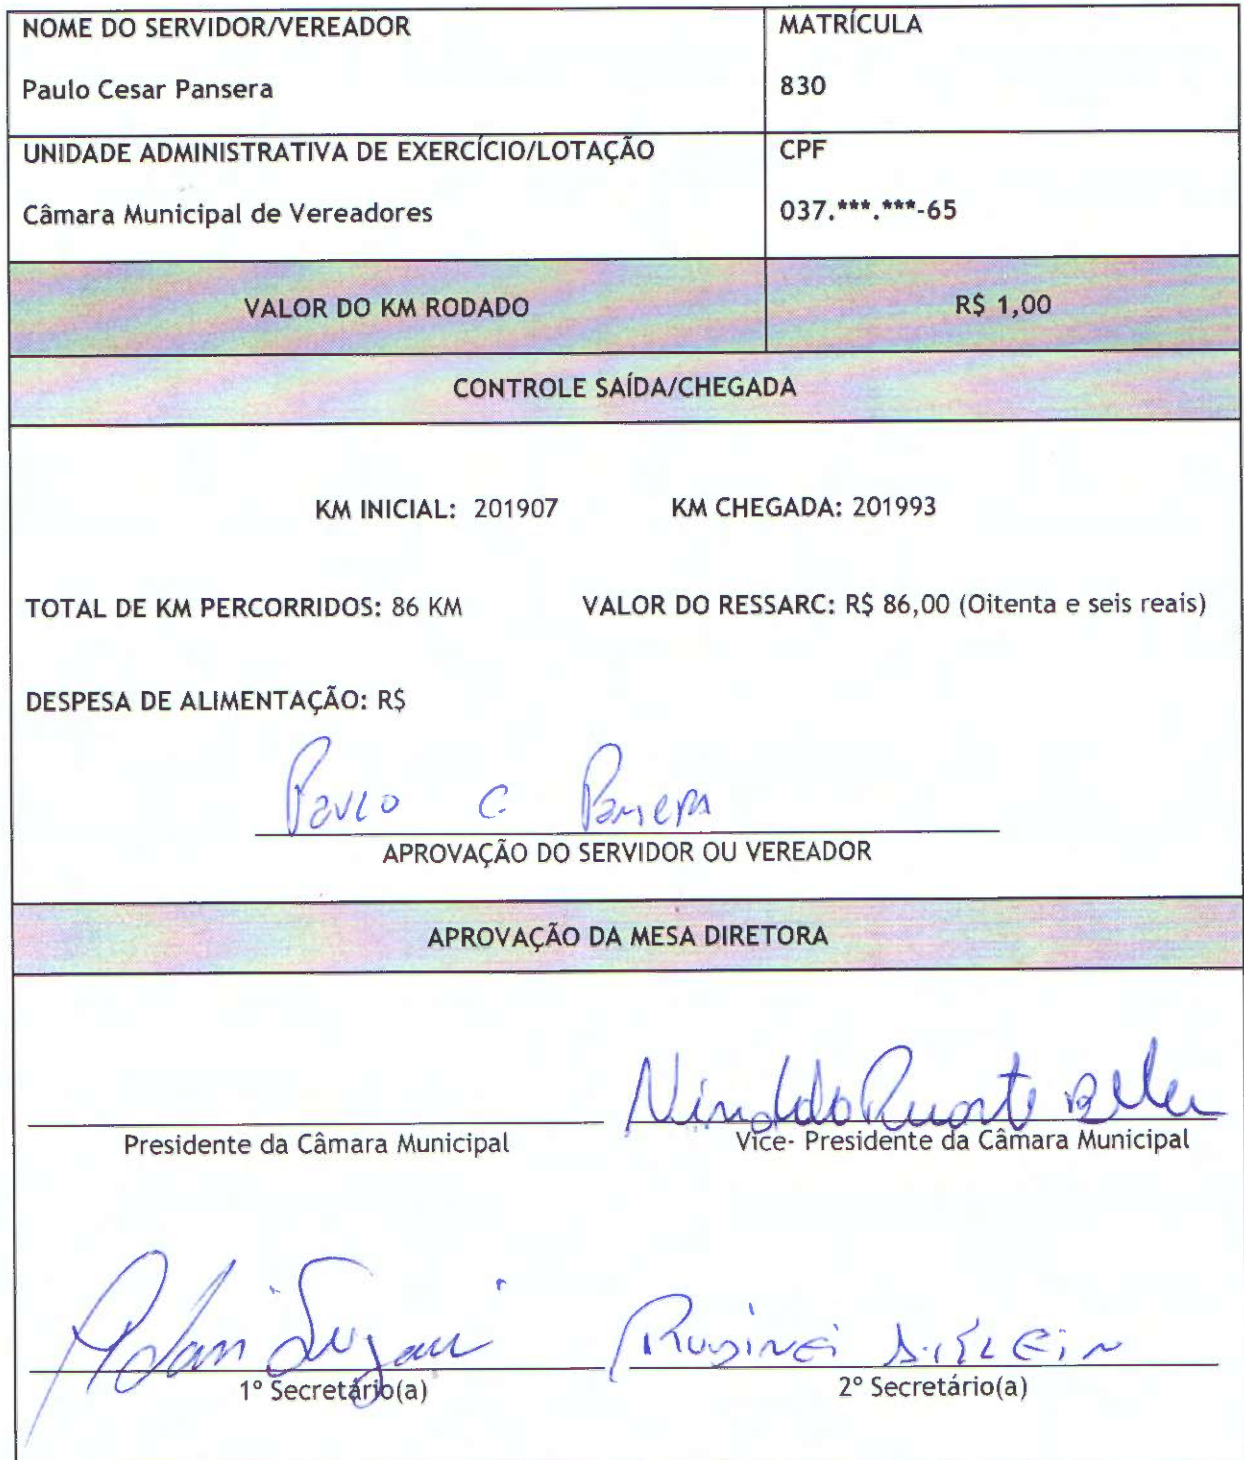 NOME DO SERVIDOR/VEREADOR
MATRÍCULA
Paulo Cesar Pansera
830
UNIDADE ADMINISTRATIVA DE EXERCÍCIO/LOTAÇÃO
CPF
Câmara Municipal de Vereadores
037.***.***-65
VALOR DO KM RODADO
R$ 1,00
CONTROLE SAÍDA/CHEGADA
KM INICIAL: 201907 KM CHEGADA: 201993
TOTAL DE KM PERCORRIDOS: 86 KM VALOR DO RESSARC: R$ 86,00 (Oitenta e seis reais)
DESPESA DE ALIMENTAÇÃO: R$
Paulo C Pansera
APROVAÇÃO DO SERVIDOR OU VEREADOR
APROVAÇÃO DA MESA DIRETORA
Presidente da Câmara Municipal
Vice- Presidente da Câmara Municipal
1º Secretário(a)
2º Secretário(a)